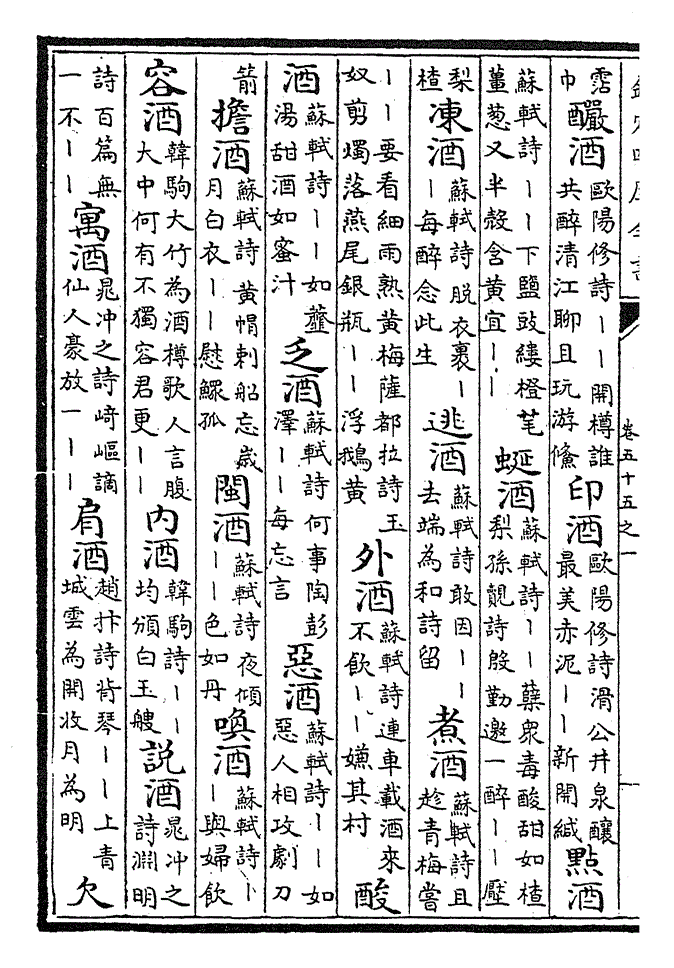 欽定四庫全書
卷五十五之一
霑巾釅酒歐陽修詩丨丨開樽誰共醉清江聊且玩游鯈印酒歐陽修詩滑公井泉釀最美赤泥丨丨新開緘點酒
蘇軾詩丨丨下鹽豉縷橙芼薑葱又半殼含黃宜丨丨蜒酒蘇軾詩丨丨蘖衆毒酸甜如楂梨孫覿詩殷勤邀一醉丨丨壓
梨楂凍酒蘇軾詩脫衣裹丨丨每醉念此生逃酒蘇軾詩敢因丨丨去端為和詩留煮酒蘇軾詩且趁青梅嘗
丨丨要看細雨熟黃梅薩都拉詩玉奴剪燭落燕尾銀瓶丨丨浮鵝黃外酒蘇軾詩連車載酒來不飲丨丨嫌其村酸
酒蘇軾詩丨丨如虀湯甜酒如蜜汁乏酒蘇軾詩何事陶彭澤丨丨每忘言惡酒蘇軾詩丨丨如惡人相攻劇刀
箭擔酒蘇軾詩黃帽刺船忘歲月白衣丨丨慰鰥孤閩酒蘇軾詩夜傾丨丨色如丹喚酒蘇軾詩丨丨與婦飲
容酒韓駒大竹為酒樽歌人言腹大中何有不獨容君更丨丨內酒韓駒詩丨丨均頒白玉艘説酒晁冲之詩淵明
詩百篇無一不丨丨寓酒晁冲之詩崎嶇謫仙人豪放一丨丨肩酒趙抃詩背琴丨丨上青城雲為開收月為明欠